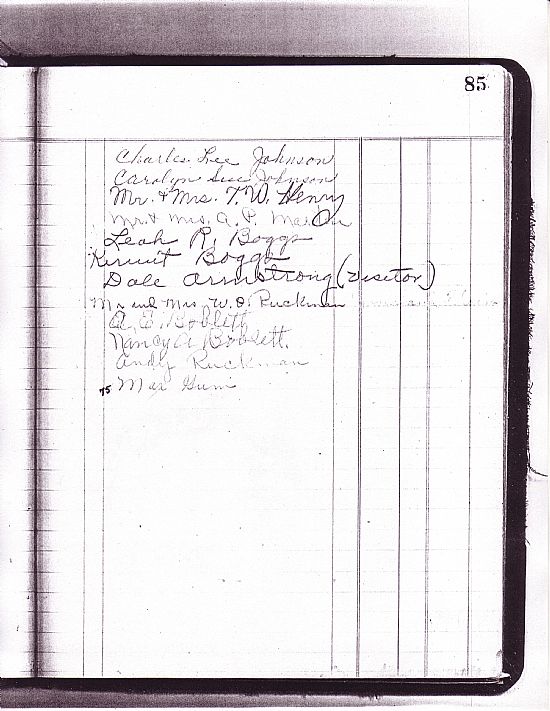 85
Charles Lee Johnson
Carolyn Sue Johnson
Mr. & Mrs. T. W. Henry
Mr. & Mrs. A. P.
Leah R. Boggs
Kermit Boggs
Dale Armstrong (visitor)
Mr and Mrs. W. D. Ruckman
A. E. Boblett
Nancy A. Boblett.
Andy Ruckman
75 Mae Gum